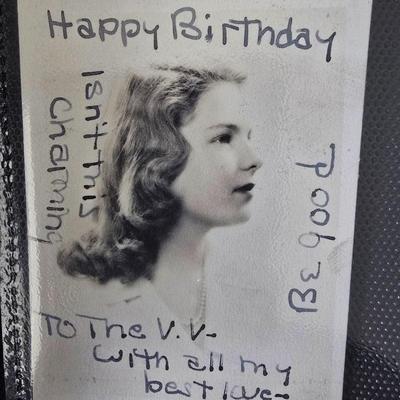 Happy Birthday
Isn't this
Charming
Be good
To The V.V-
with all my
best love-